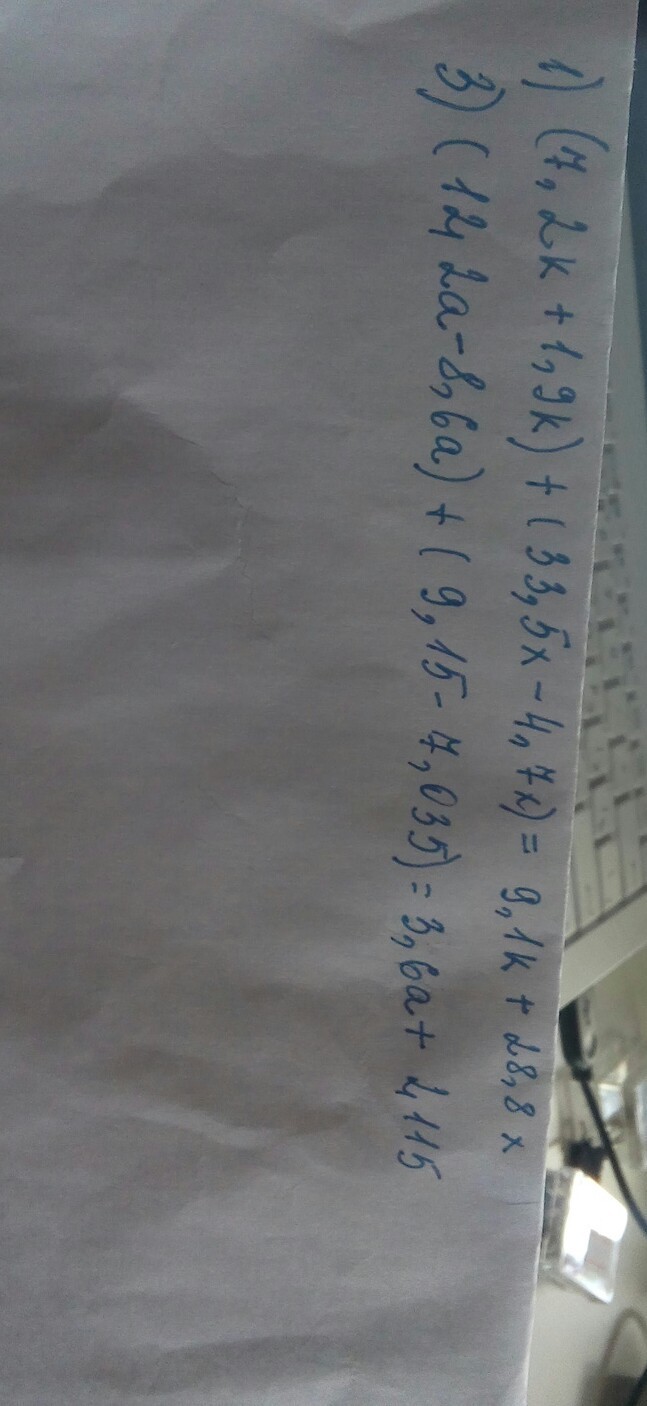 1) (7,2k + 1,9k) + (33,5x - 4,7x) = 9,1k + 28,8x
3) (12,2a - 8,6a) + (9,15 - 7,035) = 3,6a + 2,115